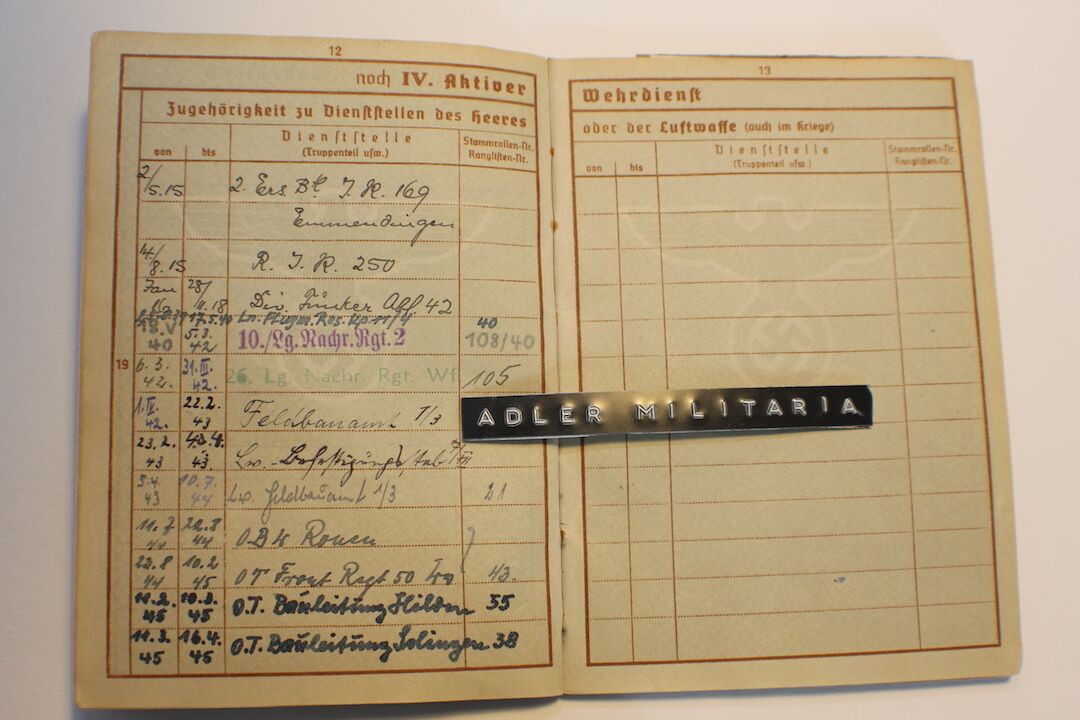 12
noch IV. Aktiver
Zugehörigkeit zu Dienststellen des Heeres
von bis Dienststelle (Truppenteil usw.) Stammrollen-Nr. Ranglisten-Nr.
2/5.15 2. Ers Btl. I. R. 169
Emmendingen
14/8.15 R. I. R. 250
Jan 16 28/11.18 Div. Funker Abt 42
17.5.40 Ln. Flugm. Res. Kp. 11/4 40
18.V 40 5.3. 42 10./Lg. Nachr. Rgt. 2 108/40
19 6.3. 42. 31.III. 42. 26. Lg. Nachr. Rgt. Wf. 105
1.IV. 42. 22.2. 43 Feldbauamt 7/3
23.2. 43 43. Lw.- Befestigungsstab
5.4. 43 10.7. 44 Lw. Feldbauamt 1/3 21
11.7 44 22.8 44 OBL Rouen
23.8 44 10.2 45 OT Front Regt 50 Lw 43.
11.2. 45 10.3. 45 O.T. Bauleitung Hilden 55
11.3. 45 16.4. 45 O.T. Bauleitung Solingen 38
13
Wehrdienst
oder der Luftwaffe (auch im Kriege)
von bis Dienststelle (Truppenteil usw.) Stammrollen-Nr. Ranglisten-Nr.
ADLER MILITARIA